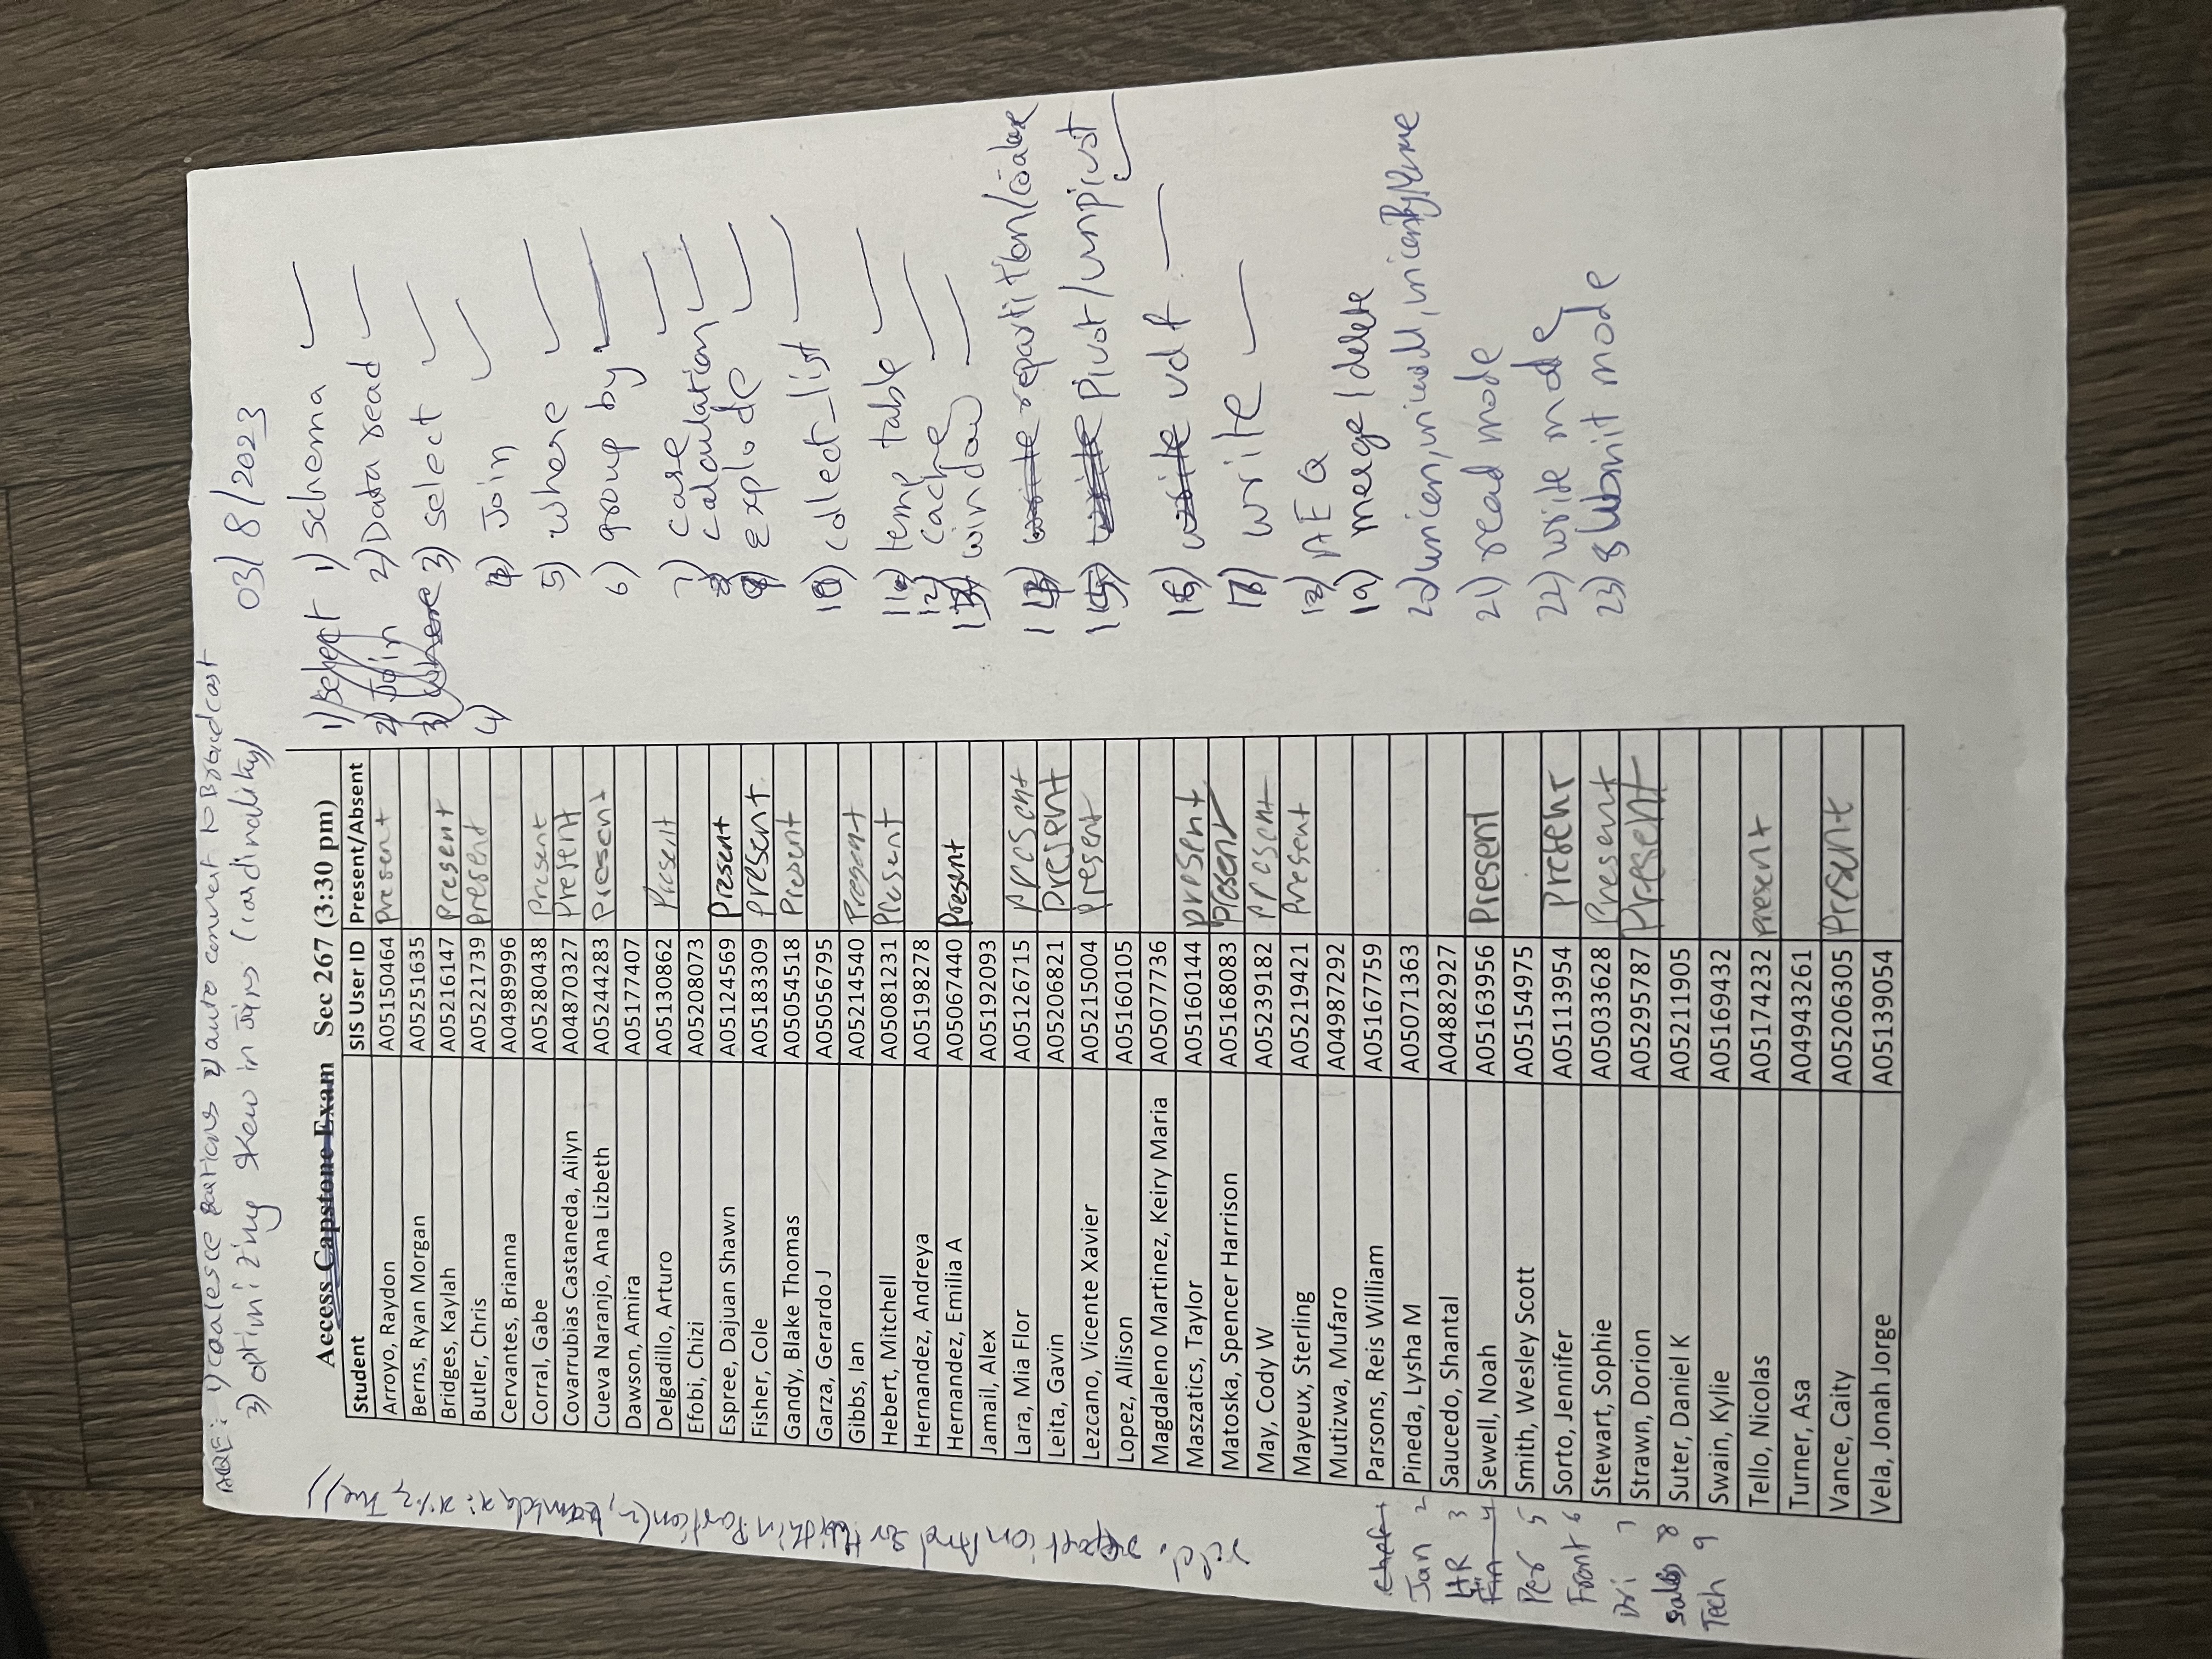 AQE: 1) coalesce partions 2) auto convert to Broadcast
3) optimizing skew in Joins (cardinality)
03/8/2023
Access Capstone Exam Sec 267 (3:30 pm)
Student SIS User ID Present/Absent
Arroyo, Raydon A05150464 present
Berns, Ryan Morgan A05251635
Bridges, Kaylah A05216147 Present
Butler, Chris A05221739 present
Cervantes, Brianna A04989996
Corral, Gabe A05280438 Present
Covarrubias Castaneda, Ailyn A04870327 Present
Cueva Naranjo, Ana Lizbeth A05244283 present
Dawson, Amira A05177407
Delgadillo, Arturo A05130862 Present
Efobi, Chizi A05208073
Espree, Dajuan Shawn A05124569 Present
Fisher, Cole A05183309 present
Gandy, Blake Thomas A05054518 Present
Garza, Gerardo J A05056795
Gibbs, Ian A05214540 Present
Hebert, Mitchell A05081231 Present
Hernandez, Andreya A05198278
Hernandez, Emilia A A05067440 Present
Jamail, Alex A05192093
Lara, Mia Flor A05126715 Present
Leita, Gavin A05206821 Present
Lezcano, Vicente Xavier A05215004 Present
Lopez, Allison A05160105
Magdaleno Martinez, Keiry Maria A05077736
Maszatics, Taylor A05160144 present
Matoska, Spencer Harrison A05168083 Present
May, Cody W A05239182 Present
Mayeux, Sterling A05219421 Present
Mutizwa, Mufaro A04987292
Parsons, Reis William A05167759
Pineda, Lysha M A05071363
Saucedo, Shantal A04882927
Sewell, Noah A05163956 Present
Smith, Wesley Scott A05154975
Sorto, Jennifer A05113954 Present
Stewart, Sophie A05033628 Present
Strawn, Dorion A05295787 Present
Suter, Daniel K A05211905
Swain, Kylie A05169432
Tello, Nicolas A05174232 present
Turner, Asa A04943261
Vance, Caity A05206305 Present
Vela, Jonah Jorge A05139054
1) select
2) Join
3) where
4)
1) schema
2) Data read
3) select
4) Join
5) where
6) group by
7) case
8 calculation
9) explode
10) collect_list
11) temp table
12) cache
13) window
14) write repartition/
15) write pivot/unpivot
16) write udf
17) write
18) AEQ
19) merge/delete
20) union, unionall, unionByName
21) read mode
22) write mode
23) submit mode
chef
Jan 2
HR 3
Fin 4
Per 5
Front 6
Dri 7
sales 8
Tech 9